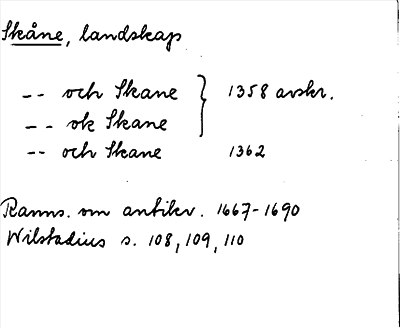 Skåne, landskap
-- och Skane } 1358 avskr.
-- ok Skane
-- och Skane 1362
Ranns. om antikv. 1667-1690
Wilstadius s. 108, 109, 110